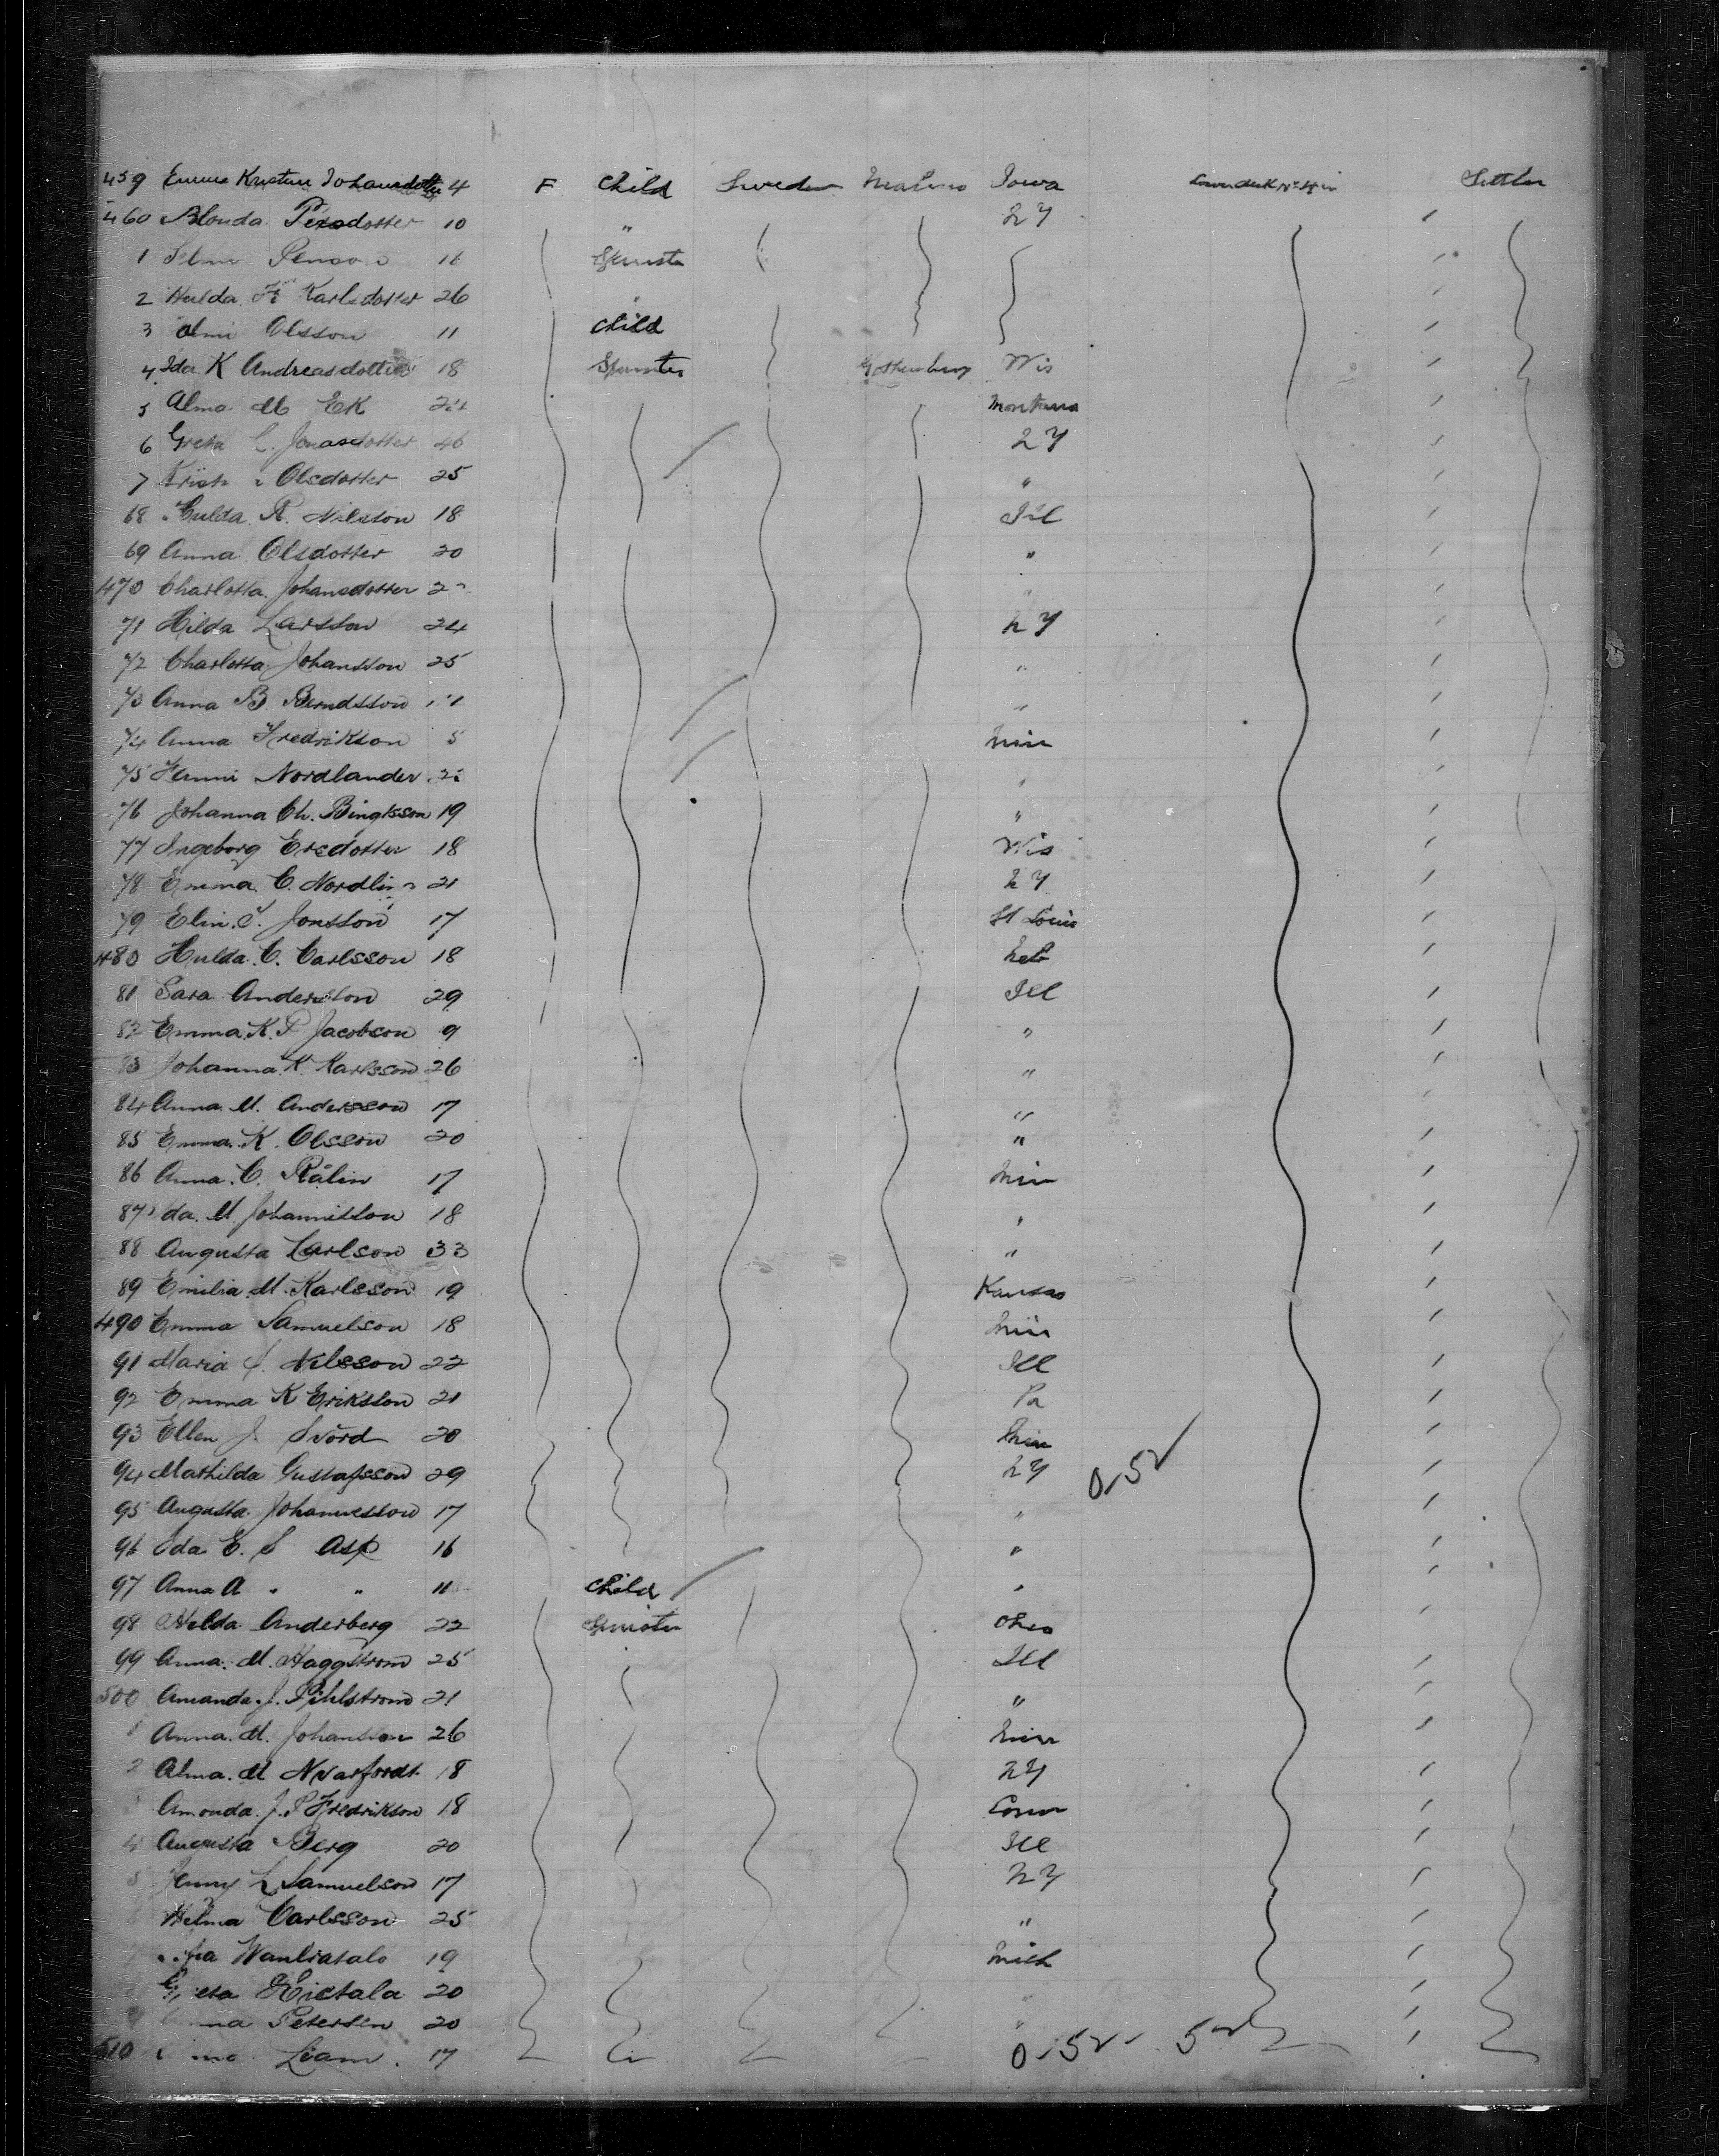 459 Emma Kristina Johansdotter 4 F Child Sweden Malmo Iowa Lower deck No 4 in Settler
460 Blonda Persdotter 10 " NY
1 16 Spinster
2 Hulda F Karlsdotter 26
3 Olsson 11 Child
4 Ida K Andreasdotter 18 Spinster Gothenburg Wis
5 Alma M Ek Montana
6 Greta C. Jonasdotter 46 NY
7 Olsdotter 25 "
68 Hulda R. Nilsson 18 Ill
69 Anna Olsdotter 20 "
470 Charlotta Johansdotter "
71 Hilda Larsson 24 NY
72 Charlotta Johansson 25 "
73 Anna B. Berndtsson "
74 Anna Fredrikson Min
75 Fanni Nordlander "
76 Johanna Ch. Bingtsson 19 "
77 Ingeborg Ersdotter 18 Wis
78 Emma C. Nordlin 21 NY
79 Elin S. Jonsson 17 St Louis
480 Hulda C. Carlsson 18 Neb
81 Sara Andersson 29 Ill
82 Emma K. P Jacobson 9 "
83 Johanna K. Karlsson 26 "
84 Anna M. Andersson 17 "
85 Emma K. Olsson 20 "
86 Anna C. Rålin 17 Min
87 da M Johannisson 18 "
88 Augusta Carlson 33 "
89 Emilia M. Karlsson 19 Kansas
490 Emma Samuelson 18 Min
91 Maria S. Nilsson 22 Ill
92 Emma K Erikson 21 Pa
93 Ellen J. Svörd 20 Min
94 Mathilda Gustafsson 29 NY 0-52
95 Augusta Johannesson 17 "
96 Ida E. S Asp 16 "
97 Anna A " " 11 Child "
98 Hilda Anderberg 22 Spinster Ohio
99 Anna M. Haggstrom 25 Ill
500 Amanda J. Pihlstrom 21 "
1 Anna M. Johansson 26 Min
2 Alma M 18 NY
Amanda J. P Fredrikson 18 Conn
4 Augusta Berg 20 Ill
5 Jenny L Samuelson 17 NY
Hilma Carlsson 25 "
Wanliatalo 19 Mich
Greta Hietala 20 "
Petersen 20 "
510 Liam 17 0-52 - 52